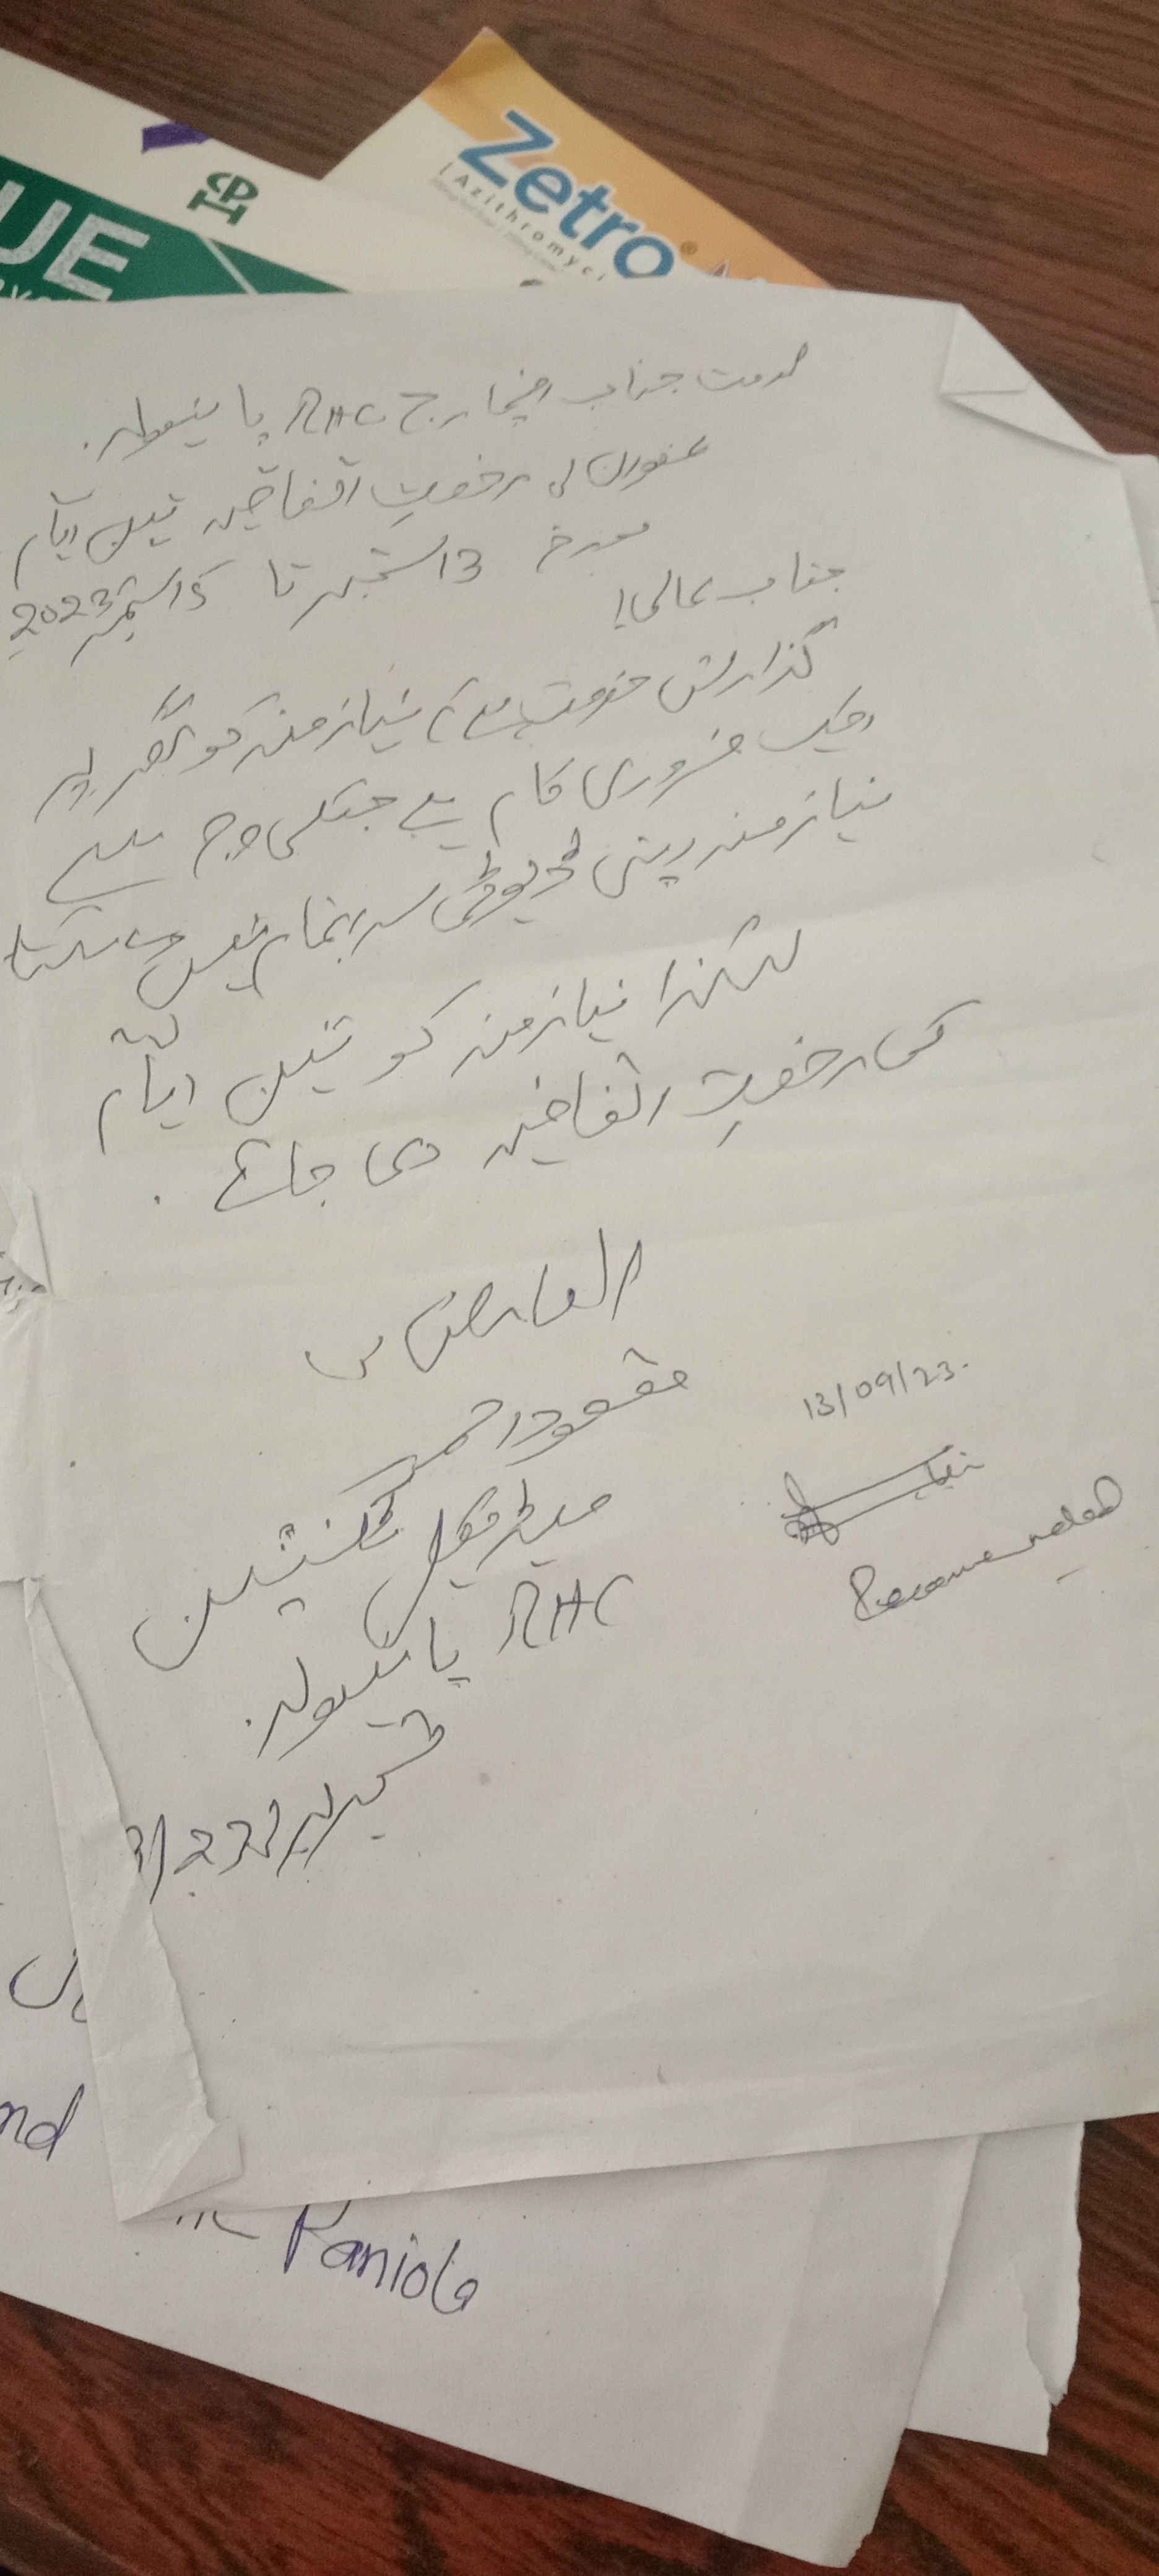 Zetro®
(Azithromyci
UE
خدمت جناب انچارج RHC پانیولہ.
عنوان: رخصتِ اتفاقیہ تین ایام
مورخہ 13 ستمبر تا 15 ستمبر 2023ء
جناب عالی!
گذارش خدمت ہے کہ نیازمند کو گھر پر
ایک ضروری کام ہے جسکی وجہ سے
نیازمند اپنی ڈیوٹی سرانجام نہیں دے سکتا
لہٰذا نیازمند کو تین ایام
کی رخصتِ اتفاقیہ دی جائے.
العارض
مقصود احمد
میڈیکل ٹیکنیشن
RHC پانیولہ.
13/09/23.
Recommended
nd
Paniola